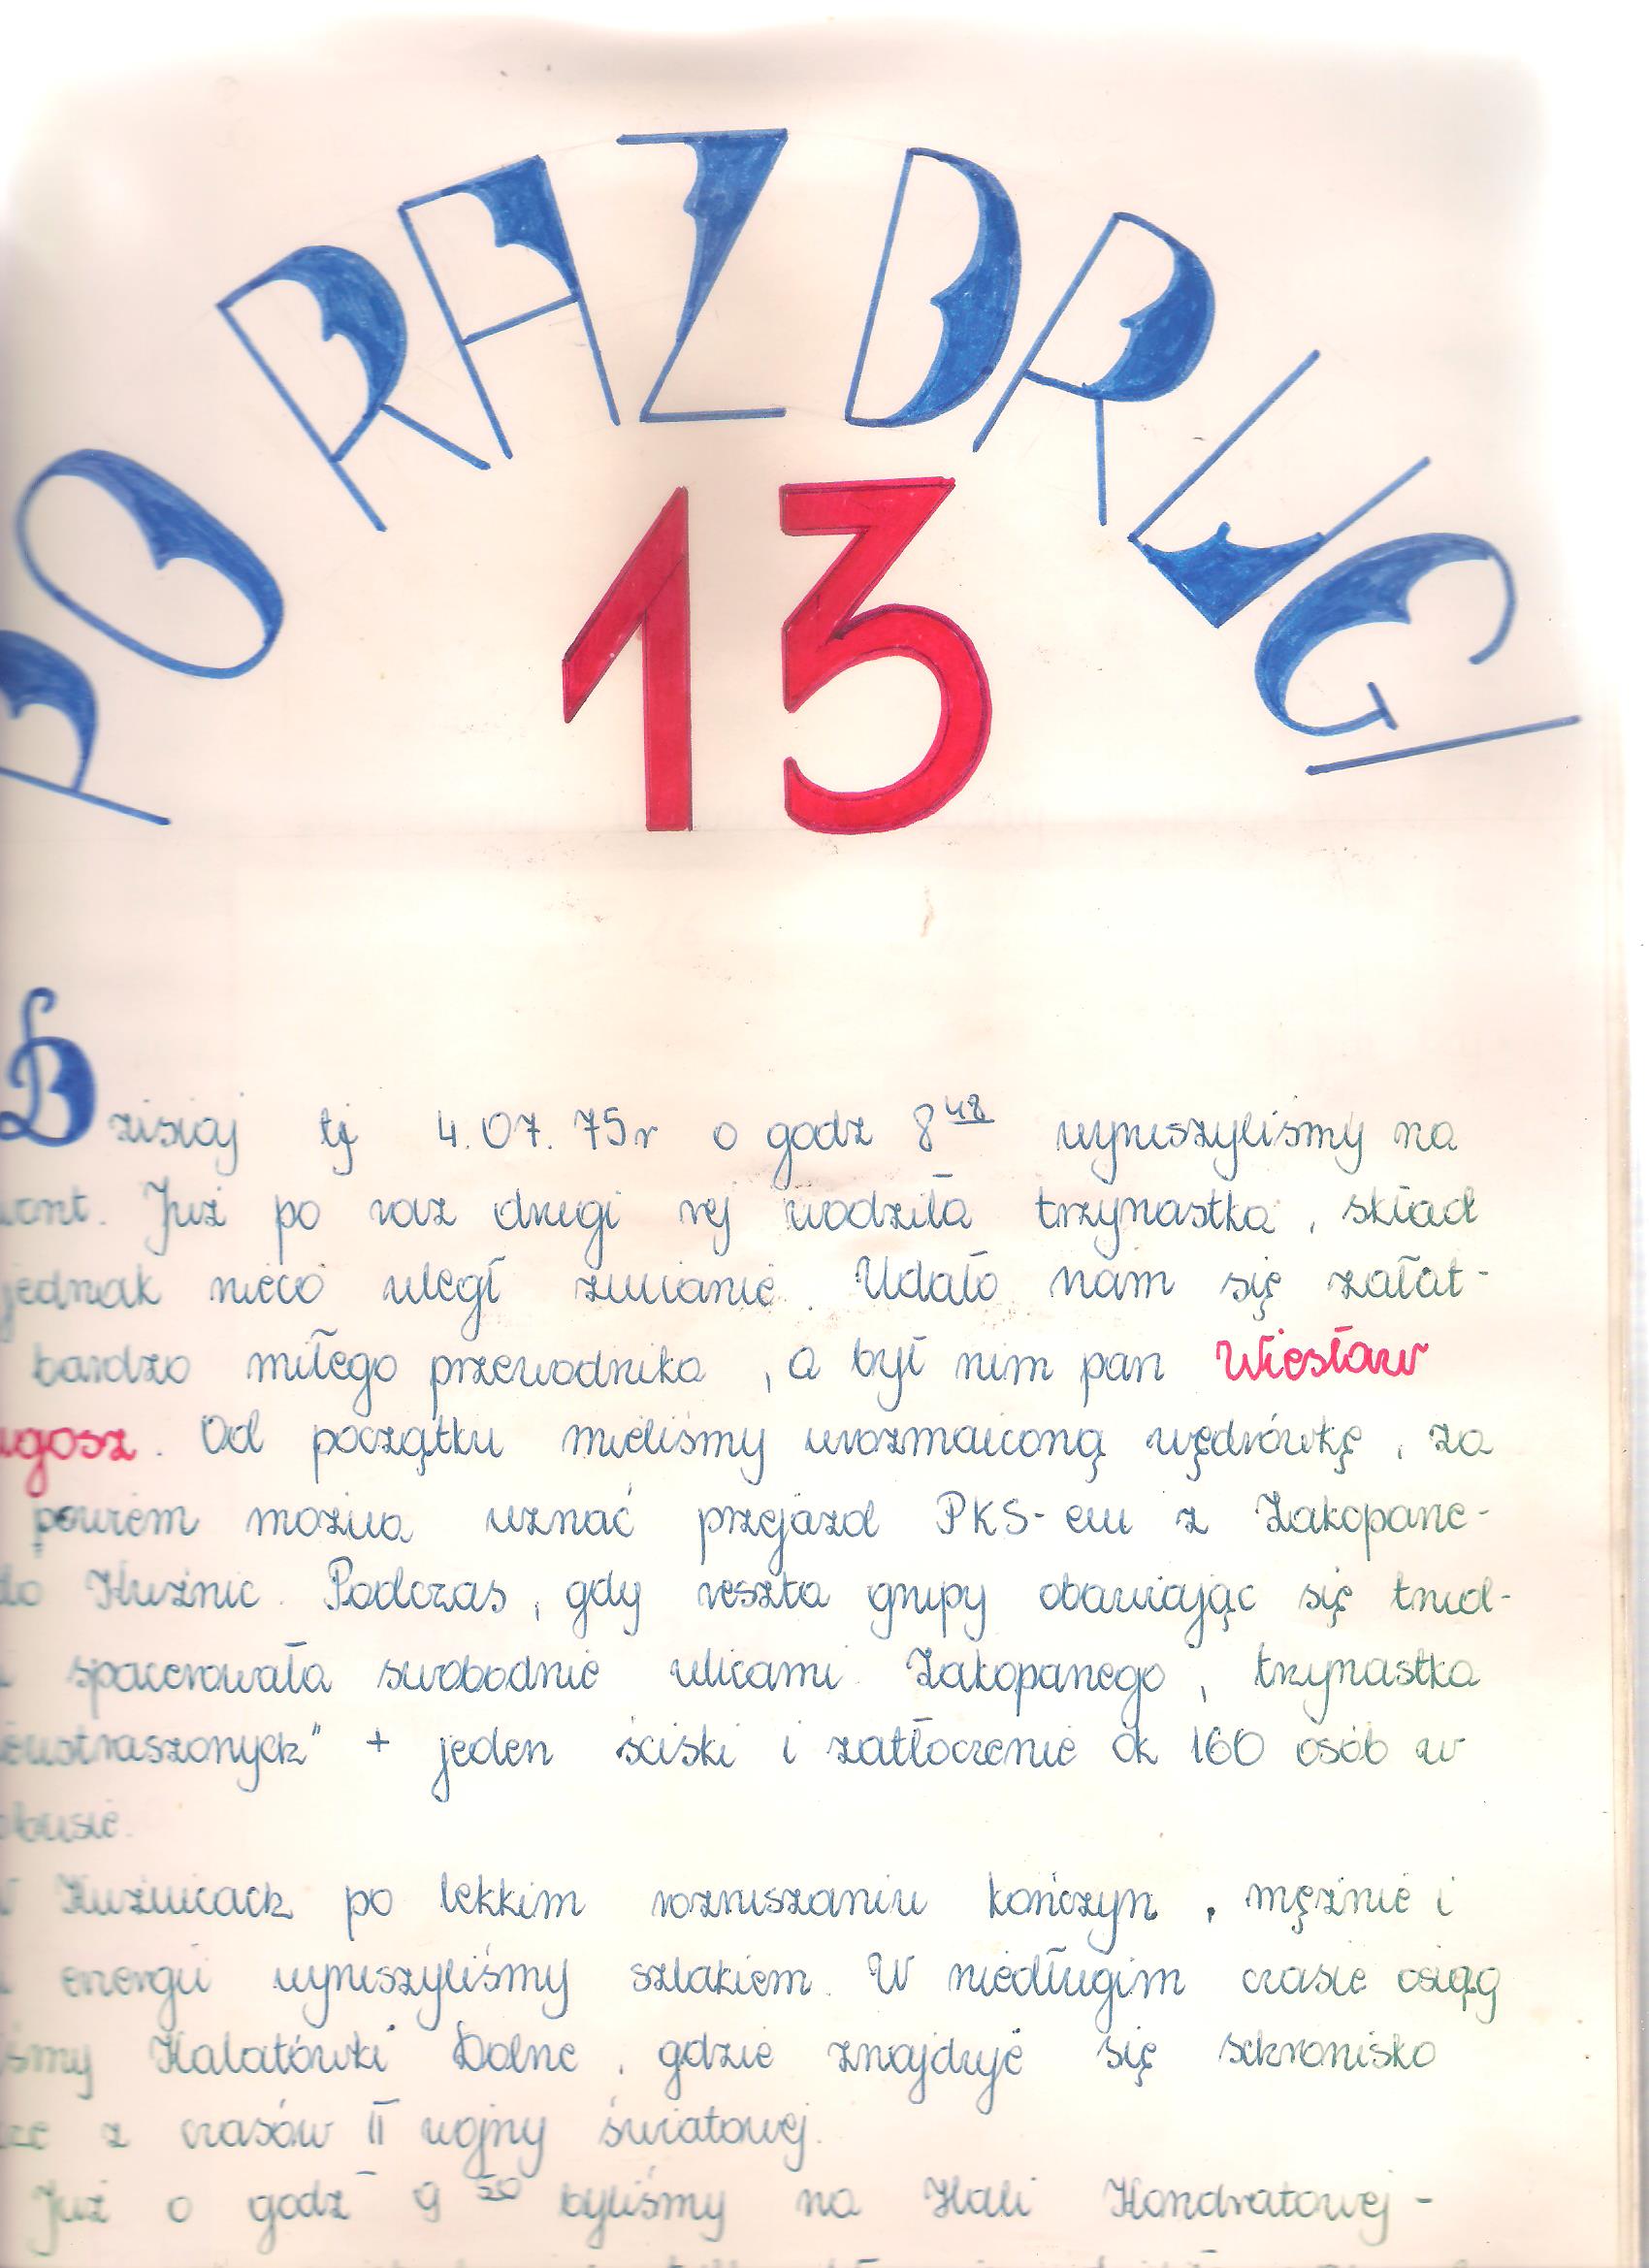 PO RAZ DRUGI
13
Dzisiaj tj 4.07.75r o godz 8 48 wyruszyliśmy na
wont. Już po raz drugi rej wodziła trzynastka, skład
jednak nieco uległ zmianie. Udało nam się załat-
bardzo miłego przewodnika, a był nim pan Wiesław
ugosz. Od początku mieliśmy urozmaiconą wędrówkę, za
powiem można uznać przejazd PKS-em z Zakopane-
do Kuźnic. Podczas, gdy reszta grupy obawiając się trud-
spacerowała swobodnie ulicami Zakopanego, trzynastka
eustraszonych" + jeden ściski i zatłoczenie ok 160 osób w
obusie.
W Kuźnicach po lekkim rozruszaniu kończyn, mężnie i
energii wyruszyliśmy szlakiem. W niedługim czasie osiąg
iśmy Kalatówki Dolne, gdzie znajduje się schronisko
z czasów II wojny światowej.
Już o godz 9 50 byliśmy na Hali Kondratowej-